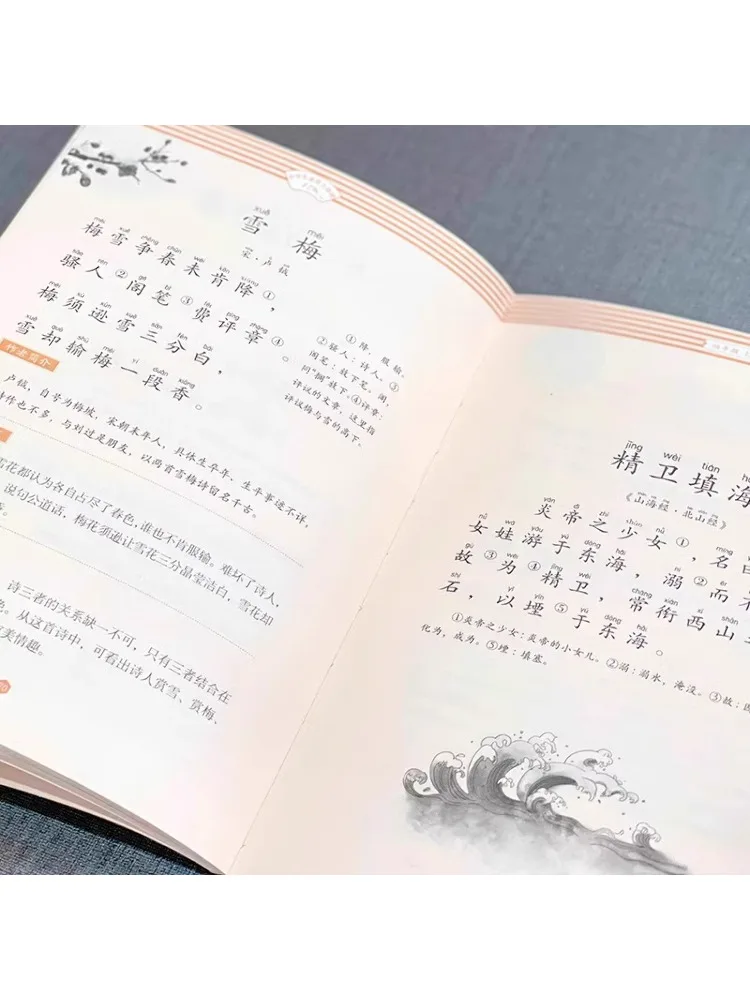 xuě méi
雪 梅
宋·卢钺
梅雪争春未肯降①,
骚人②阁笔③费评章④。
梅须逊雪三分白,
雪却输梅一段香。
①降,服输。
②骚人:诗人。③
阁笔:放下笔。阁,
同“搁”放下。④评章:
评议的文章,这里指
评议梅与雪的高下。
作者简介
卢钺,自号为梅坡,宋朝末年人,具体生卒年、生平事迹不详,
诗作也不多,与刘过是朋友,以两首雪梅诗留名千古。
雪花都认为各自占尽了春色,谁也不肯服输。难坏了诗人,
说句公道话,梅花须逊让雪花三分晶莹洁白,雪花却
诗三者的关系缺一不可,只有三者结合在
色。从这首诗中,可看出诗人赏雪、赏梅、
美情趣。
jīng wèi tián
精卫填海
《山海经·北山经》
炎帝之少女①,名曰
女娃游于东海,溺②而不
故③为④精卫,常衔西山之
石,以堙⑤于东海。
①炎帝之少女:炎帝的小女儿。②溺:溺水,淹没。③故:因
化为,成为。⑤堙:填塞。